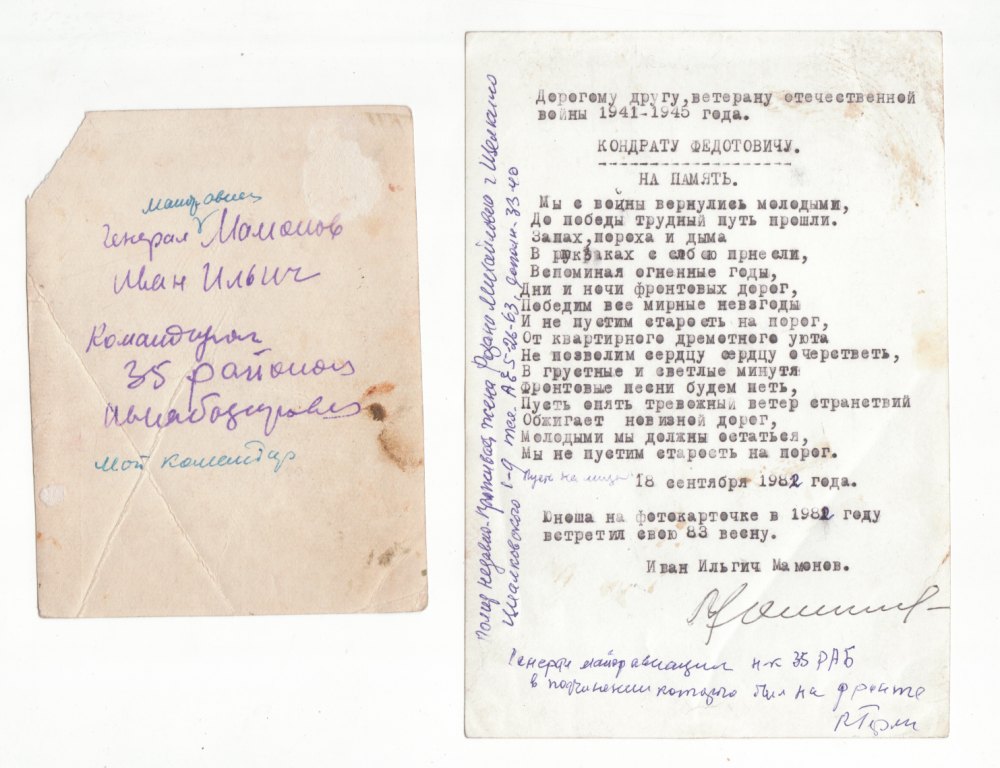 майор авиац
генерал Мамонов
Иван Ильич
Командующ
35 районом
Авиабазирован
мой командир
Дорогому другу,ветерану отечественной
войны 1941-1945 года.
КОНДРАТУ ФЕДОТОВИЧУ.
НА ПАМЯТЬ.
Мы с войны вернулись молодыми,
До победы трудный путь прошли.
Запах,пороха и дыма
В рюкзаках с собою принесли,
Вспоминая огненные годы,
Дни и ночи фронтовых дорог,
Победим все мирные невзгоды
И не пустим старость на порог,
От квартирного дремотного уюта
Не позволим сердцу сердцу очерстветь,
В грустные и светлые минуты
Фронтовые песни будем петь,
Пусть опять тревожный ветер странствий
Обжигает новизной дорог,
Молодыми мы должны остаться,
Мы не пустим старость на порог.
18 сентября 1982 года.
Юноша на фотокарточке в 1982 году
встретил свою 83 весну.
Иван Ильгич Мамонов.
Генерал майор авиации н-к 35 РАБ
в подчинении которого был на фронте
недавно жена Михайловна г Щелково
Циалковского 1-9 тел. 5-26-63, 33-40